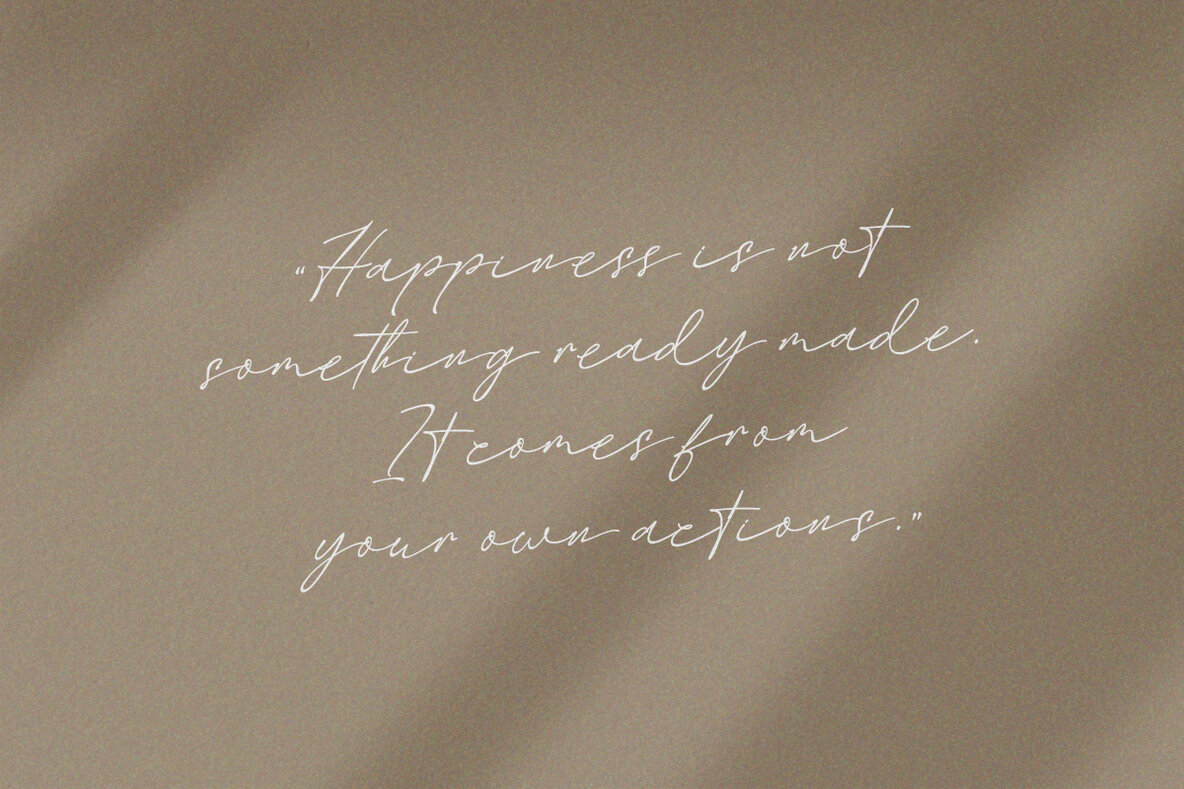 “Happiness is not
something ready made.
It comes from
your own actions.”